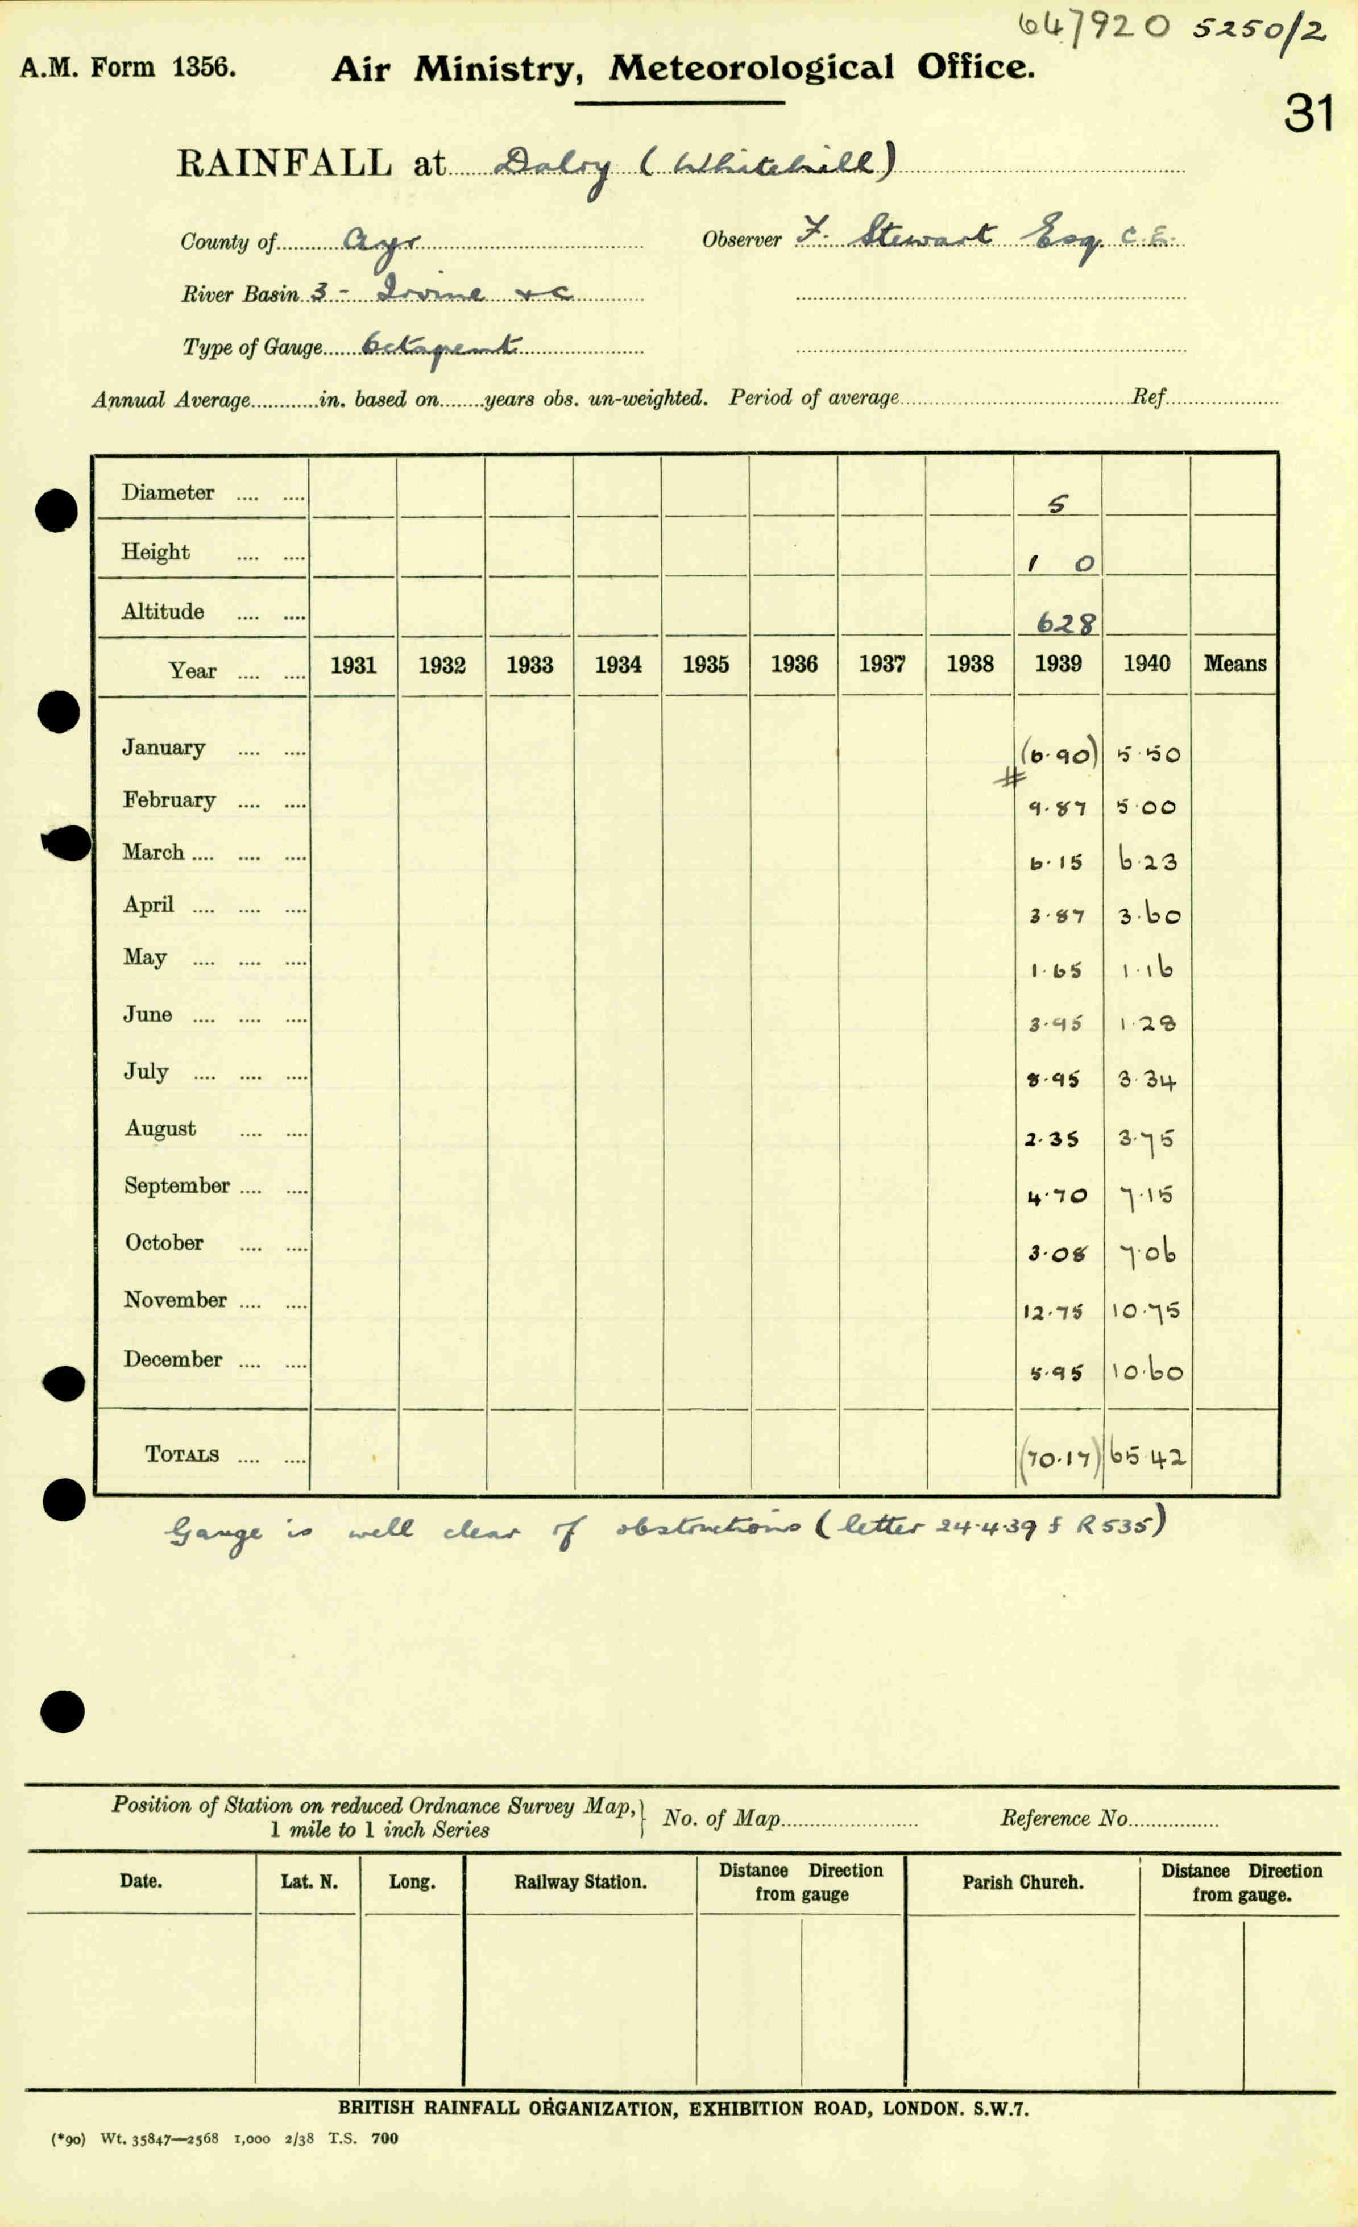 647920 5250/2
A.M. Form 1356. Air Ministry, Meteorological Office.
31
RAINFALL at Dalry (Whitehill)
County of Ayr Observer F. Stewart Esq. C.E.
River Basin 3 - Irvine &c
Type of Gauge Octapent
Annual Average............in. based on........years obs. un-weighted. Period of average........Ref........
Diameter .... .... 5
Height .... .... 1 0
Altitude .... .... 628
Year .... .... 1931 1932 1933 1934 1935 1936 1937 1938 1939 1940 Means
January .... .... (6.90) 5.50
#
February .... .... 9.87 5.00
March .... .... .... 6.15 6.23
April .... .... .... 3.87 3.60
May .... .... .... 1.65 1.16
June .... .... .... 3.95 1.28
July .... .... .... 8.95 3.34
August .... .... 2.35 3.75
September .... .... 4.70 7.15
October .... .... 3.08 7.06
November .... .... 12.75 10.75
December .... .... 5.95 10.60
TOTALS .... .... (70.17) 65.42
Gauge is well clear of obstructions (letter 24.4.39 f R535)
Position of Station on reduced Ordnance Survey Map,} No. of Map........ Reference No........
1 mile to 1 inch Series
Date. Lat. N. Long. Railway Station. Distance Direction from gauge Parish Church. Distance Direction from gauge.
BRITISH RAINFALL ORGANIZATION, EXHIBITION ROAD, LONDON. S.W.7.
(*90) Wt. 35847—2568 1,000 2/38 T.S. 700